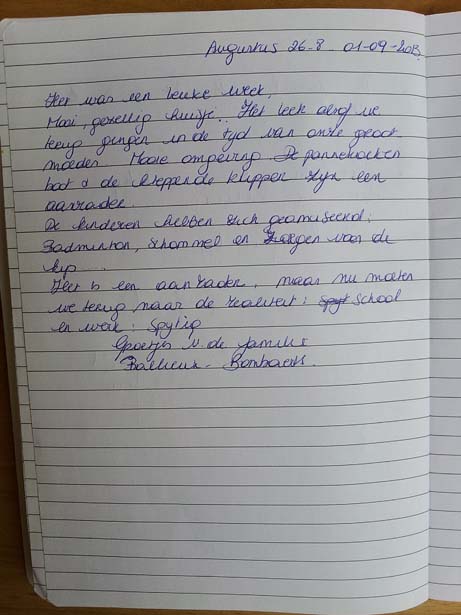 Augustus 26-8 01-09-2013
Het was een leuke week,
Mooi, gezellig huisje.. Het leek alsof we
terug gingen in de tijd van onze groot
moeder. Mooie omgeving. De pannekoeken
boot & de kleppende klippen zijn een
aanrader.
De kinderen hebben zich geamuseerd:
Badminton, schommel en zorgen voor de
kip....
Het is een aanrader, maar nu moeten
we terug naar de realiteit: school
en werk: Spijtig
Groetjes v. de familie
Bombaerts